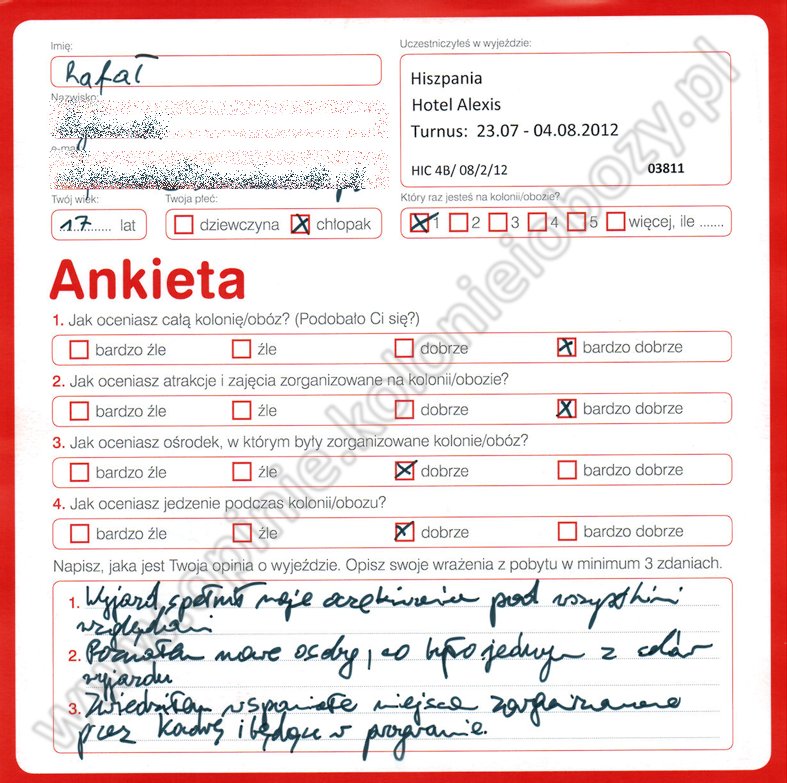 Imię:
Rafał
Nazwisko:
Uczestniczyłeś w wyjeździe:
Hiszpania
Hotel Alexis
Turnus: 23.07 - 04.08.2012
HIC 4B/ 08/2/12 03811
Twój wiek:
17 lat
Twoja płeć:
dziewczyna chłopak
Który raz jesteś na kolonii/obozie?
1 2 3 4 5 więcej, ile .......
Ankieta
1. Jak oceniasz całą kolonię/obóz? (Podobało Ci się?)
bardzo źle źle dobrze bardzo dobrze
2. Jak oceniasz atrakcje i zajęcia zorganizowane na kolonii/obozie?
bardzo źle źle dobrze bardzo dobrze
3. Jak oceniasz ośrodek, w którym były zorganizowane kolonie/obóz?
bardzo źle źle dobrze bardzo dobrze
4. Jak oceniasz jedzenie podczas kolonii/obozu?
bardzo źle źle dobrze bardzo dobrze
Napisz, jaka jest Twoja opinia o wyjeździe. Opisz swoje wrażenia z pobytu w minimum 3 zdaniach.
1. Wyjazd spełnił moje oczekiwania pod wszystkimi
względami
2. Poznałem nowe osoby, co było jednym z celów
wyjazdu
3. Zwiedziłem wspaniałe miejsca zorganizowane
przez kadrę i będące w programie.
www.opinie.kolonieiobozy.pl